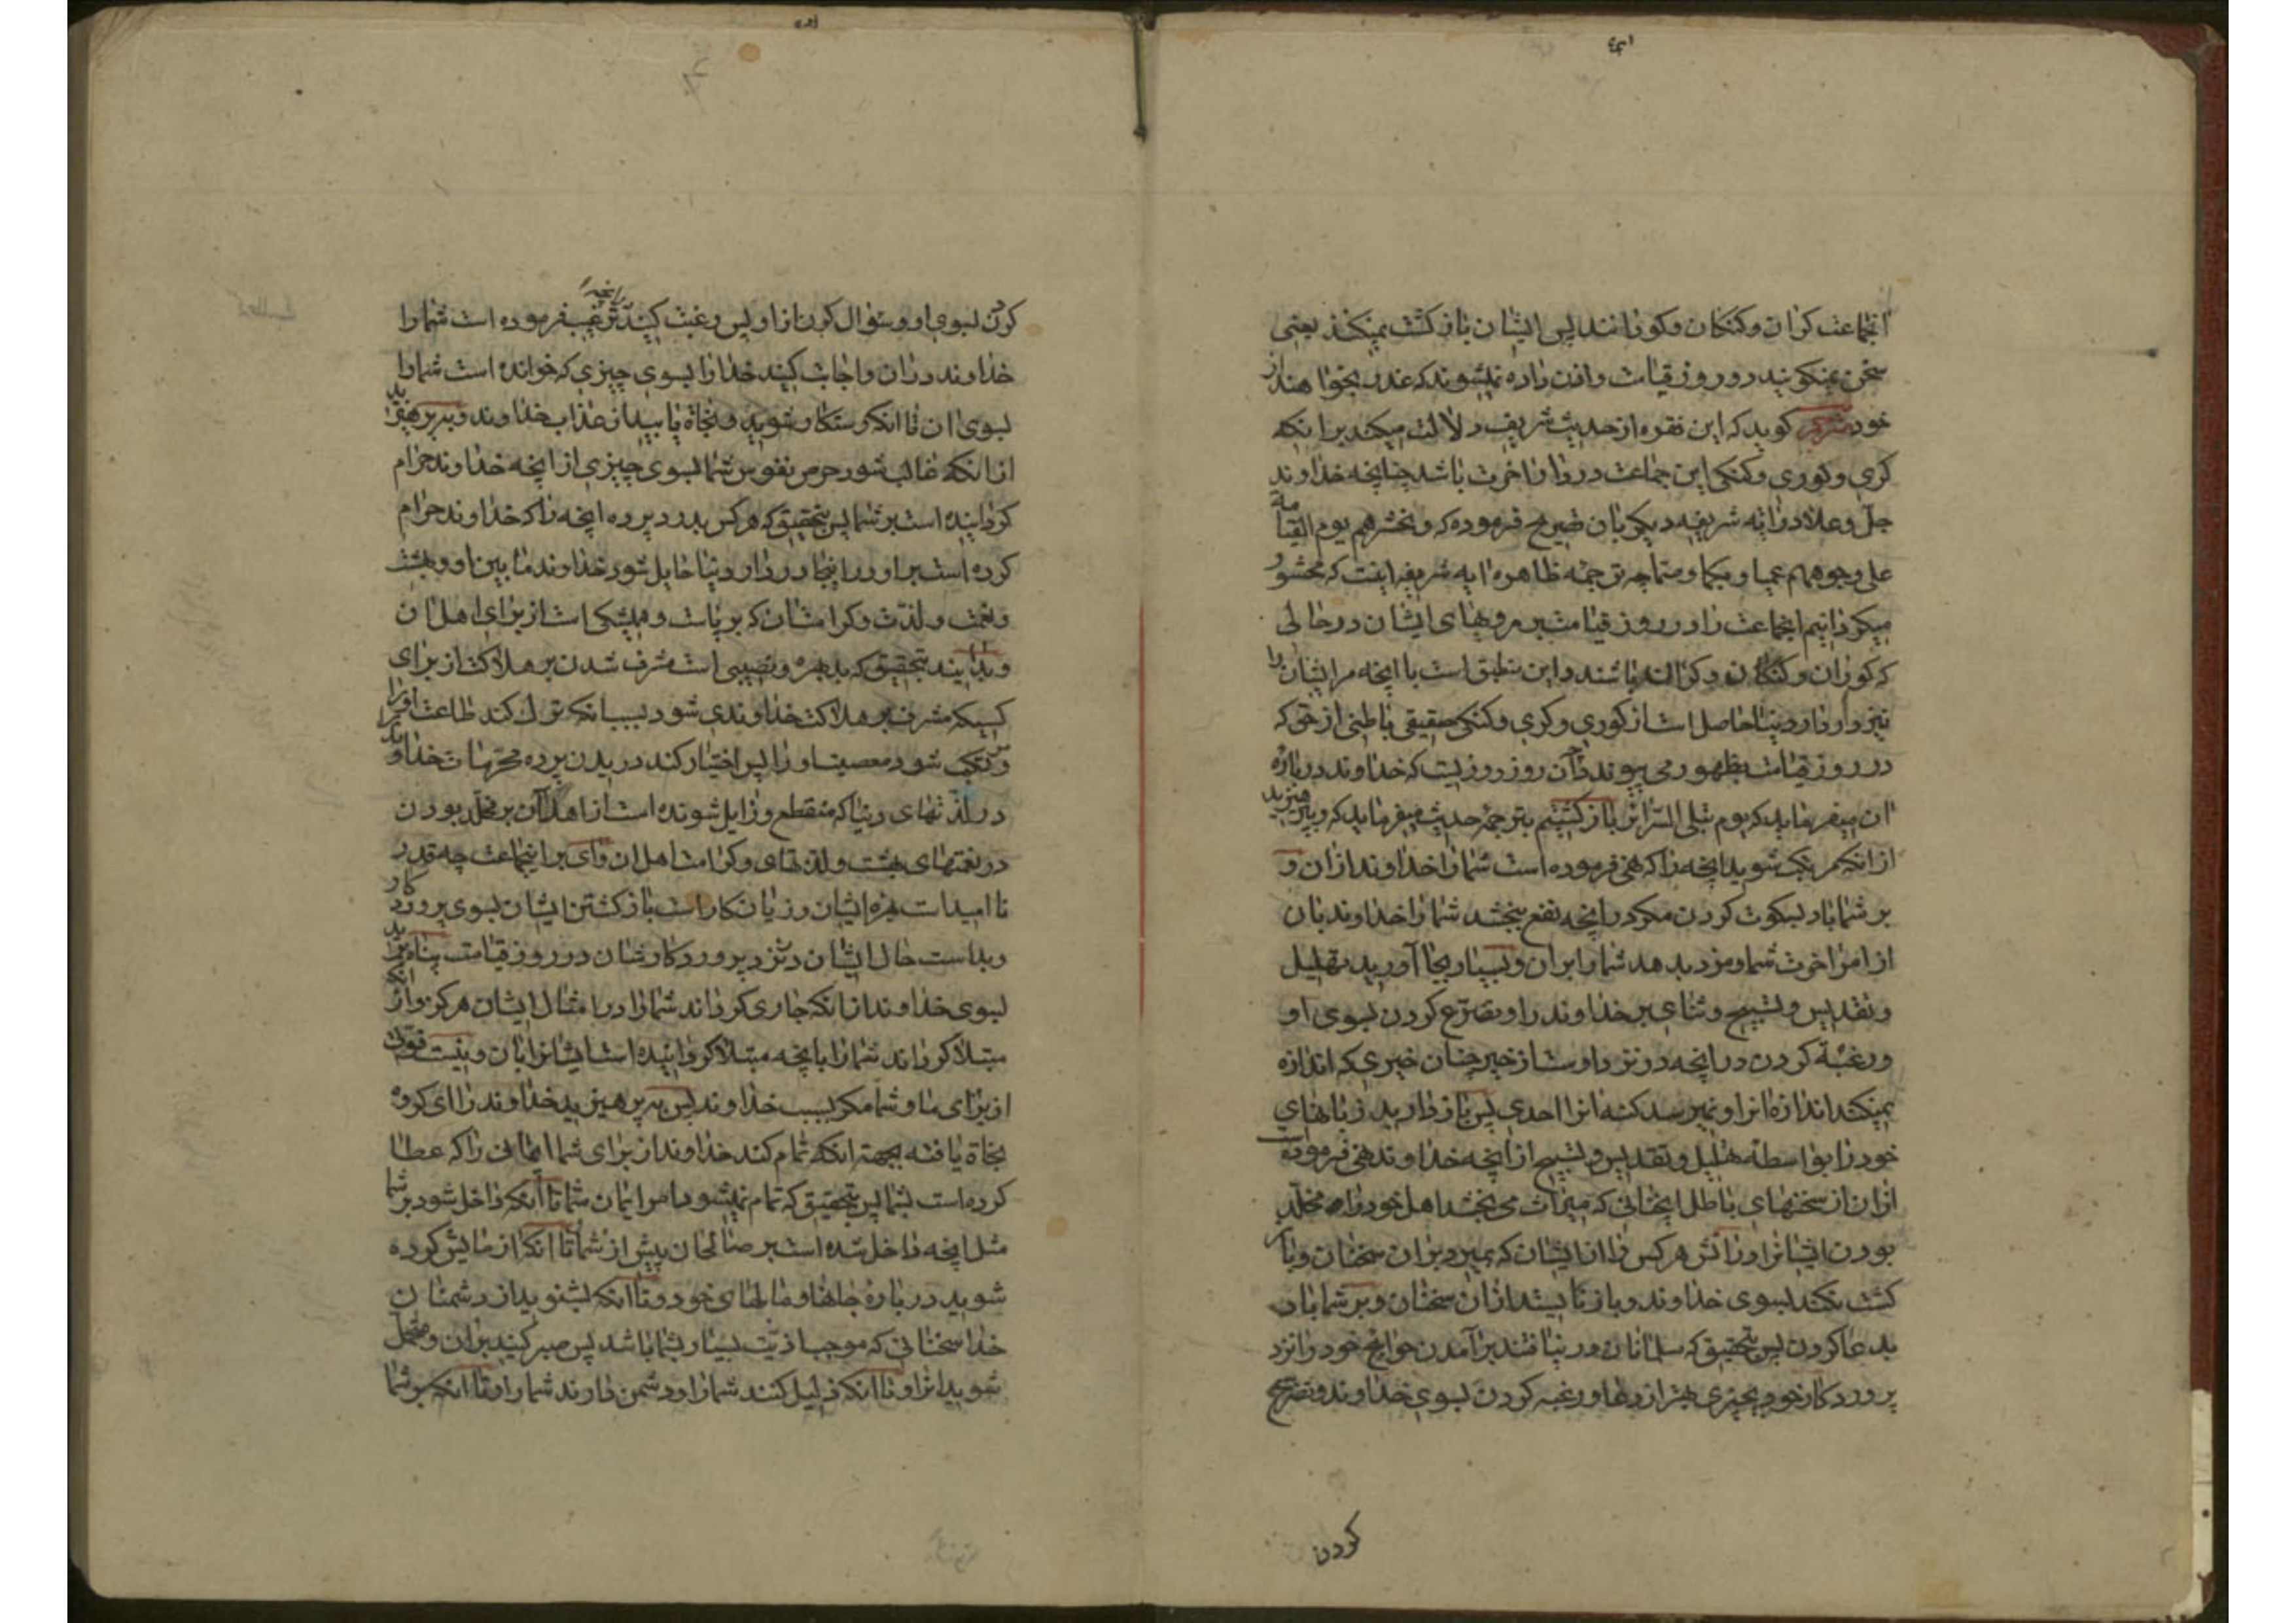 انجماعت کران و کنکان و کورانند پس ایشان باز کشت نمیکنند یعنی
سخن نمیکویند در روز قیامت و اذن داده نمیشوند که عذر بخواهند از
خود مترجم کوید که این فقره از حدیث شریف دلالت میکند برانکه
کری و کوری و کنکی این جماعت در دار اخرت باشد چنانچه خداوند
جل و علا در ایه شریفه دیکر بان تصریح فرموده که و نحشرهم یوم القیامة
علی وجوههم عمیا و بکما و صما چه ترجمه ظاهره ایه شریفه اینست که محشور
میکردانیم انجماعت را در روز قیامت بر روهای ایشان در حالی
که کوران و کنکان و کران باشند و این منطبق است با انچه مر ایشان را
نیز در دار دنیا حاصل است از کوری و کری و کنکی حقیقی باطنی از حق که
در روز قیامت بظهور می پیوندد و آن روز روزیست که خداوند درباره
ان میفرماید که یوم تبلی السرائر باز کشتیم بترجمه حدیث میفرماید که و بپرهیزید
از انکه مرتکب شوید انچه را که نهی فرموده است شما را خداوند از ان و
بر شما باد بسکوت کردن مکر در انچه نفع بخشد شما را خداوند بان
از امر اخرت شما و مزد بدهد شما را بران و بسیار بجا آورید تهلیل
و تقدیس و تسبیح و ثنای بر خداوند را و تضرع کردن بسوی او
و رغبة کردن در انچه در نزد اوست از خیر چنان خیری که اندازه
نمیکند اندازه انرا و نمیرسد کنه انرا احدی پس باز دارید زبانهای
خود را بواسطه تهلیل و تقدیس و تسبیح از انچه خداوند نهی فرموده است
ازان از سخنهای باطل انچنانی که میراث می بخشد اهل خود را مخلد
بودن ایشانرا در اتش هر کس را از ایشان که بمیرد بران سخنان و باز
کشت نکند بسوی خداوند و باز نایستد ازان سخنان و بر شما باد
بدعا کردن پس بتحقیق که مسلمانان در نیافتند برآمدن حوایج خود را نزد
پروردکار خود بچیزی بهتر از دعا و رغبه کردن بسوی خداوند و تضرع
کردن
کردن بسوی او و سؤال کردن از او پس رغبت کنید در انچه ترغیب فرموده است شما را
خداوند دران و اجابت کنید خدا را بسوی چیزی که خوانده است شما را
بسوی ان تا انکه رستکار شوید و نجاة یابید از عذاب خداوند و بپرهیزید
از انکه غالب شود حرص نفوس شما بسوی چیزی از انچه خداوند حرام
کردانیده است بر شما پس بتحقیق که هر کس بدرد پرده انچه را که خداوند حرام
کرده است بر او در اینجا در دار دنیا حایل شود خداوند ما بین او و بهشت
و نعمت و لذت و کرامت ان که برپاست و همیشکی است از برای اهل ان
و بدانید بتحقیق که بد بهره و نصیبی است مشرف شدن بر هلاکت از برای
کسیکه مشرف بر هلاکت خداوندی شود بسبب انکه ترک کند طاعت او را
و مرتکب شود معصیت او را پس اختیار کند دریدن پرده محرمات خداوند را
در لذتهای دنیا که منقطع و زایل شونده است از اهل آن بر مخلد بودن
در نعمتهای بهشت و لذتهای و کرامت اهل ان وای بر اینجماعت چه قدر
نا امید است بهره ایشان و زیانکار است بازکشتن ایشان بسوی پروردکار
و بد است حال ایشان در نزد پروردکارشان در روز قیامت پناه برید
بسوی خداوند از انکه جاری کرداند شما را در امثال ایشان هرکز و از انکه
مبتلا کرداند شما را بانچه مبتلا کردانیده است ایشانرا بان و نیست قوتی
از برای ما و شما مکر بسبب خداوند پس بپرهیزید خداوند را ای کروه
نجاة یافته بجهة انکه تمام کند خداوند از برای شما انچنانی را که عطا
کرده است بشما پس بتحقیق که تمام نمیشود امر ایمان شما تا انکه داخل شود بر شما
مثل انچه داخل شده است بر صالحان پیش از شما و تا انکه ازمایش کرده
شوید درباره جانها و مالهای خود و تا انکه بشنوید از دشمنان
خدا سخنانی که موجب اذیت بسیار بشما باشد پس صبر کنید بران و متحمل
شوید انرا و تا انکه ذلیل کنند شما را و دشمن دارند شما را و تا انکه بر شما